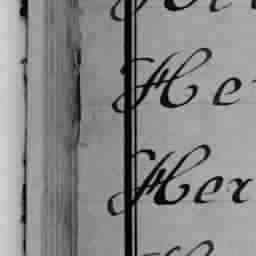 He
Her